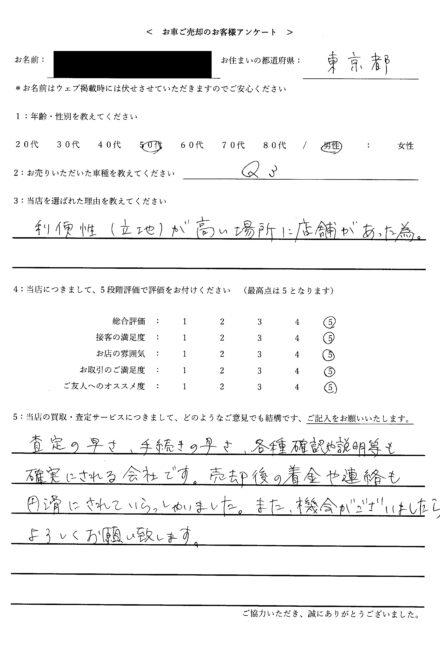 < お車ご売却のお客様アンケート >
お名前： お住まいの都道府県： 東京都
＊お名前はウェブ掲載時には伏せさせていただきますのでご安心ください
1：年齢・性別を教えてください
20代 30代 40代 50代 60代 70代 80代 / 男性 ： 女性
2：お売りいただいた車種を教えてください Q3
3：当店を選ばれた理由を教えてください
利便性（立地）が高い場所に店舗があった為。
4：当店につきまして、5段階評価で評価をお付けください （最高点は5となります）
総合評価 ： 1 2 3 4 5
接客の満足度 ： 1 2 3 4 5
お店の雰囲気 ： 1 2 3 4 5
お取引のご満足度 ： 1 2 3 4 5
ご友人へのオススメ度 ： 1 2 3 4 5
5：当店の買取・査定サービスにつきまして、どのようなご意見でも結構です、ご記入をお願いいたします。
査定の早さ、手続きの早さ、各種確認や説明等も
確実にされる会社です。売却後の着金や連絡も
円滑にされていらっしゃいました。また、機会がございましたら
よろしくお願い致します。
ご協力いただき、誠にありがとうございました。